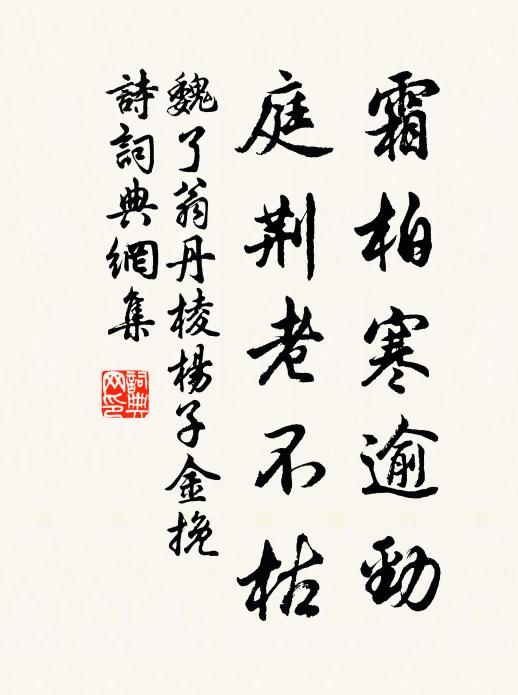 霜柏寒逾勁
庭荆老不枯
魏了翁丹棱楊子金挽
詩詞典網集
詞典网印